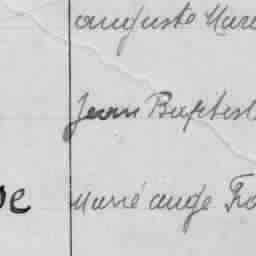 auguste Mari
Jean Baptist
Marie ange Fra